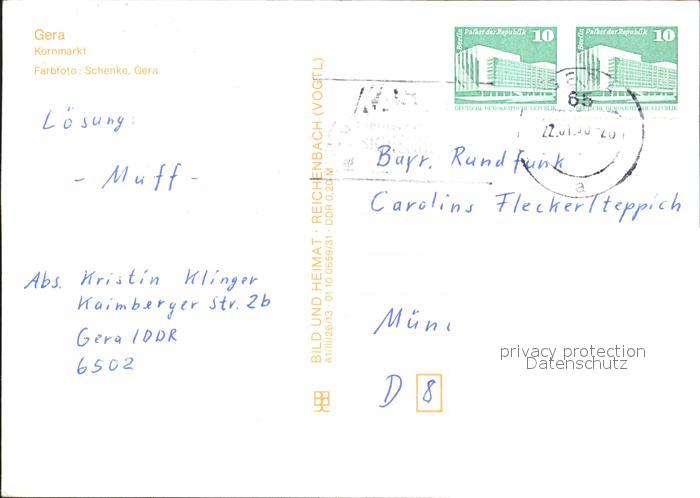 Gera
Kornmarkt
Farbfoto: Schenke, Gera
Berlin Palast der Republik 10
DEUTSCHE DEMOKRATISCHE REPUBLIK
Berlin Palast der Republik 10
DEUTSCHE DEMOKRATISCHE REPUBLIK
65
a
Lösung:
- Muff -
Abs. Kristin Klinger
Kaimberger Str. 2b
Gera / DDR
6502
BILD UND HEIMAT · REICHENBACH (VOGTL)
A1/III/26/13 01 10 0659/31 · DDR 0,20 M
Bayr. Rundfunk
Carolins Fleckerlteppich
Mün
D 8
privacy protection
Datenschutz